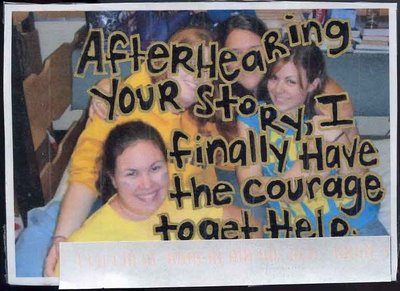 After hearing
your story, I
finally have
the courage
to get help.